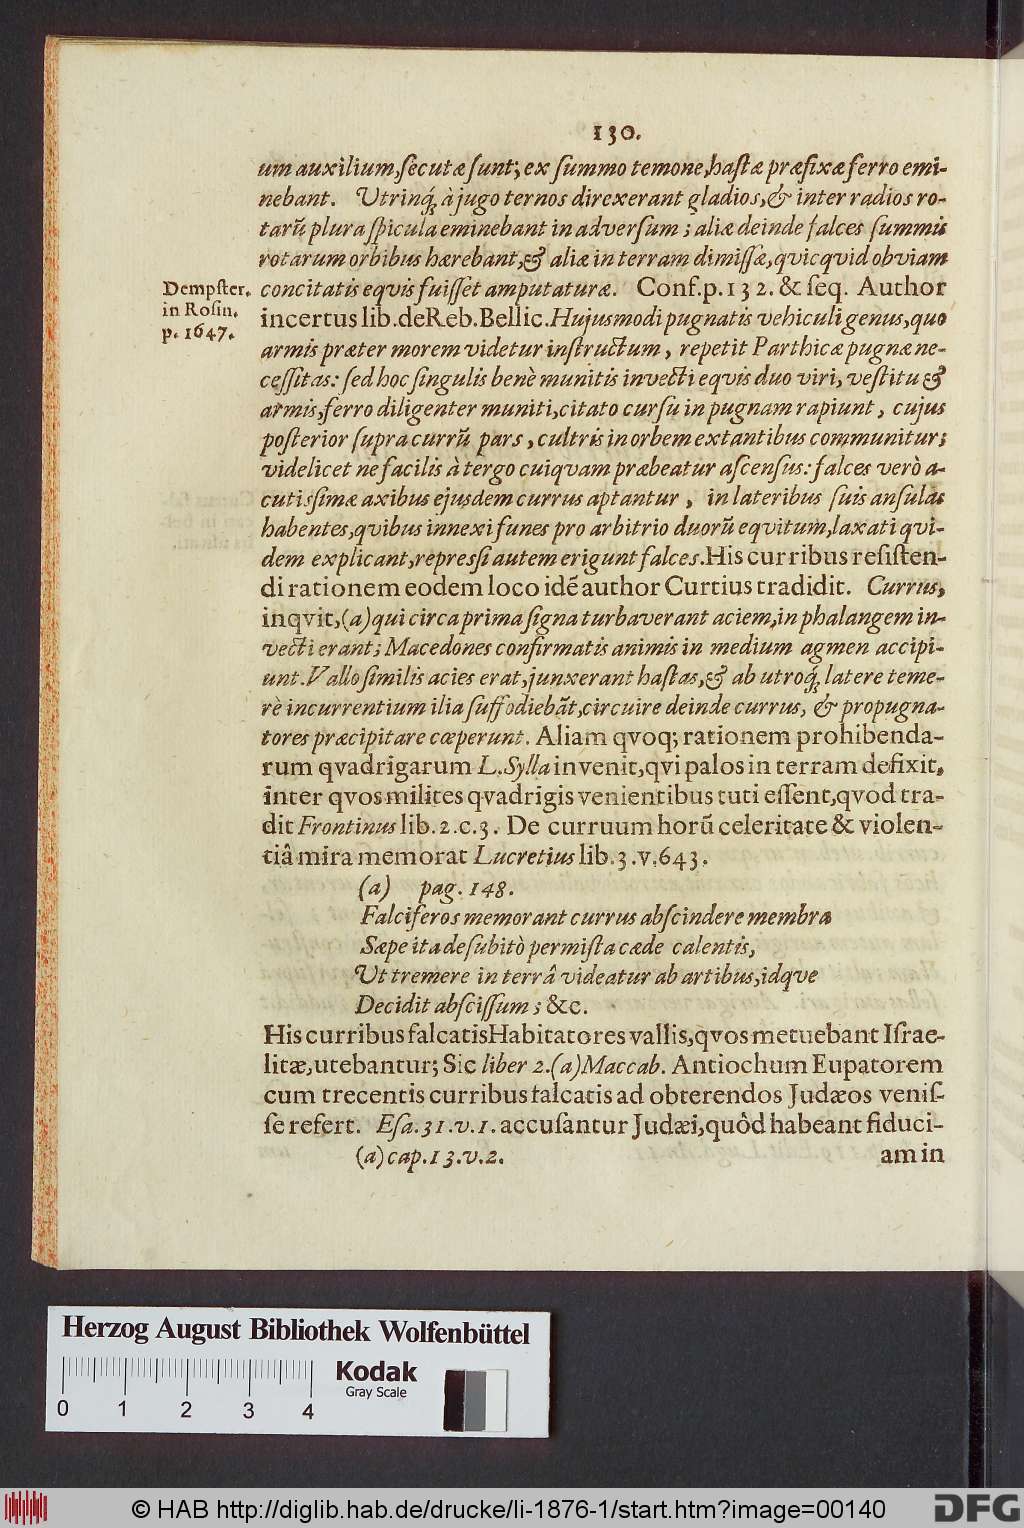 130.
um auxilium, ſecutæ ſunt; ex ſummo temone, haſtæ præfixæ ferro emi-
nebant. Utrinq́; à jugo ternos direxerant gladios, & inter radios ro-
tarũ plura ſpicula eminebant in adverſum; aliæ deinde falces ſummis
rotarum orbibus hærebant, & aliæ in terram dimiſſæ, qvicqvid obviam
Dempſter.
in Roſin.
p. 1647.
concitatis eqvis fuiſſet amputaturæ. Conf. p. 132. & ſeq. Author
incertus lib. de Reb. Bellic. Hujusmodi pugnatis vehiculi genus, quo
armis præter morem videtur inſtructum, repetit Parthicæ pugnæ ne-
ceſſitas: ſed hoc ſingulis benè munitis invecti eqvis duo viri, veſtitu &
armis, ferro diligenter muniti, citato curſu in pugnam rapiunt, cujus
poſterior ſupra currũ pars, cultris in orbem extantibus communitur;
videlicet ne facilis à tergo cuiquam præbeatur aſcenſus: falces verò a-
cutiſsimæ axibus ejusdem currus aptantur, in lateribus ſuis anſulas
habentes, qvibus innexi funes pro arbitrio duorũ eqvitum, laxati qvi-
dem explicant, repreſſi autem erigunt falces. His curribus reſiſten-
di rationem eodem loco idẽ author Curtius tradidit. Currus,
inqvit, (a) qui circa prima ſigna turbaverant aciem, in phalangem in-
vecti erant; Macedones confirmatis animis in medium agmen accipi-
unt. Vallo ſimilis acies erat, junxerant haſtas, & ab utroq́; latere teme-
rè incurrentium ilia ſuffodiebãt, circuire deinde currus, & propugna-
tores præcipitare cœperunt. Aliam qvoq; rationem prohibenda-
rum qvadrigarum L. Sylla invenit, qvi palos in terram defixit,
inter qvos milites qvadrigis venientibus tuti eſſent, qvod tra-
dit Frontinus lib. 2. c. 3. De curruum horũ celeritate & violen-
tiâ mira memorat Lucretius lib. 3. v. 643.
(a) pag. 148.
Falciferos memorant currus abſcindere membra
Sæpe ita de ſubitò permiſta cæde calentis,
Ut tremere in terrâ videatur ab artibus, idqve
Decidit abſciſſum; &c.
His curribus falcatis Habitatores vallis, qvos metuebant Iſrae-
litæ, utebantur; Sic liber 2. (a) Maccab. Antiochum Eupatorem
cum trecentis curribus falcatis ad obterendos Judæos veniſ-
ſe refert. Eſa. 31. v. 1. accuſantur Judæi, quôd habeant fiduci-
(a) cap. 13. v. 2. am in
Herzog August Bibliothek Wolfenbüttel
Kodak
Gray Scale
0 1 2 3 4
© HAB http://diglib.hab.de/drucke/li-1876-1/start.htm?image=00140
DFG